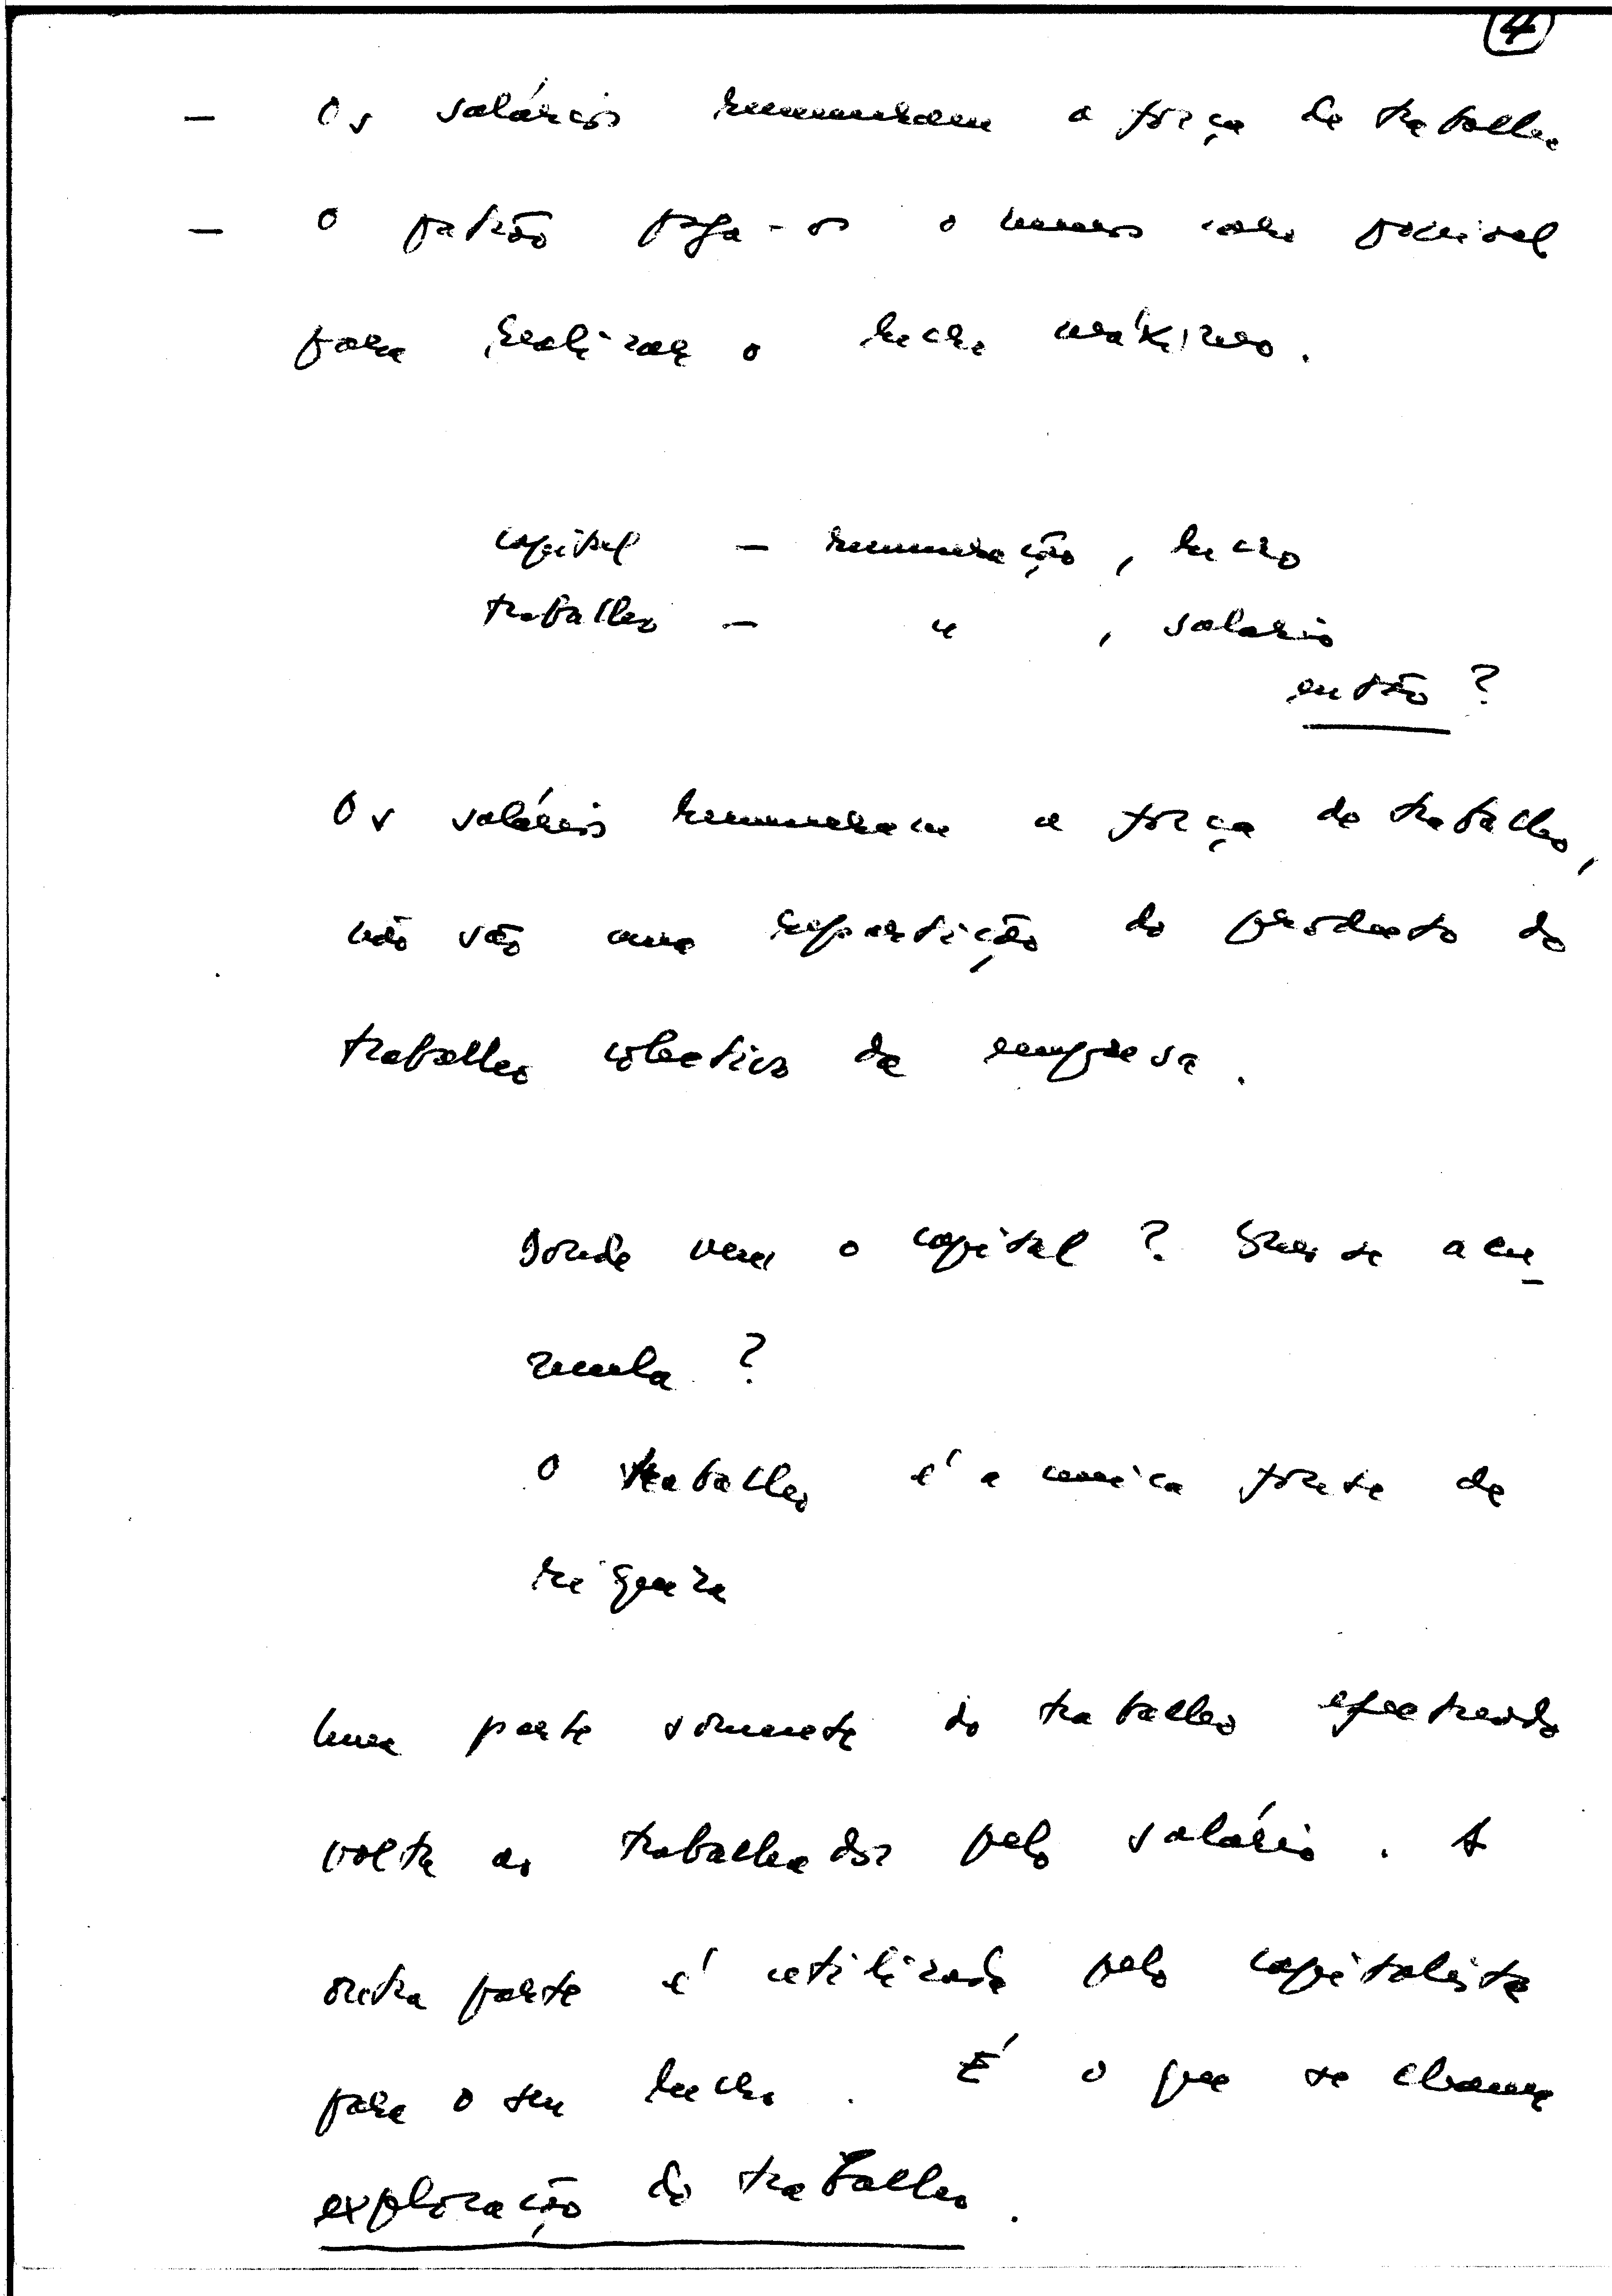 4
— Os salários remuneram a força de trabalho
— O patrão paga-os o menos caro possivel
para realizar o lucro máximo.
capital — remuneração, lucro
trabalho — " , salario
então ?
Os salários remuneram a força de trabalho,
não são uma repartição do producto do
trabalho colectivo da empresa.
Donde vem o capital ? Quem se acu-
mula ?
O trabalho é a unica fonte de
riqueza
Uma parte somente do trabalho efectuado
volta ao trabalhador pelo salário. A
outra parte é utilizada pelo capitalista
para o seu lucro. É o que se chama
exploração do trabalho.